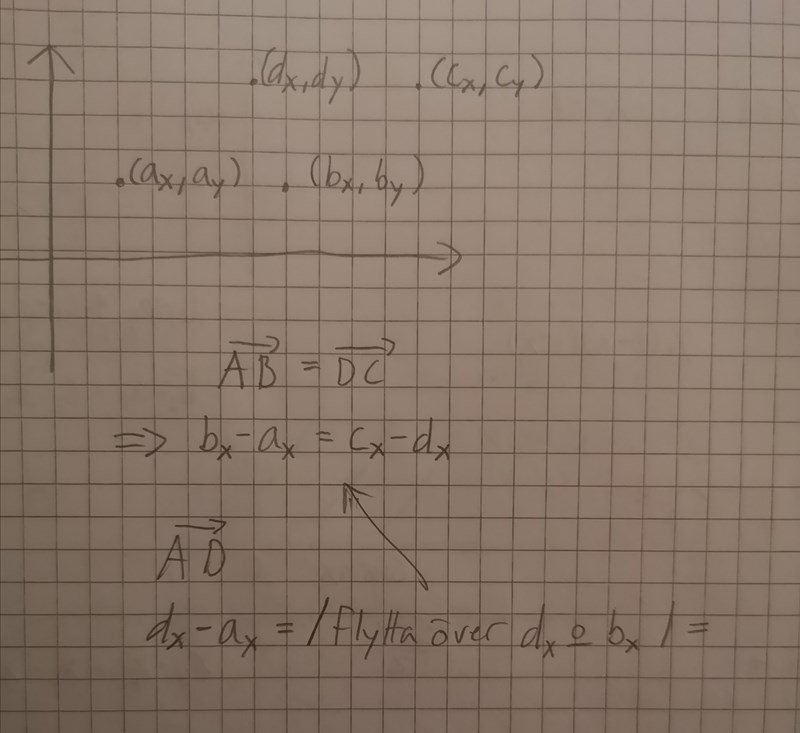 .(dₓ, d_y) .(cₓ, c_y)
.(aₓ, a_y) .(bₓ, b_y)
$\overrightarrow{AB} = \overrightarrow{DC}$
⇒ bₓ - aₓ = cₓ - dₓ
$\overrightarrow{AD}$
dₓ - aₓ = / flytta över dₓ o bₓ / =